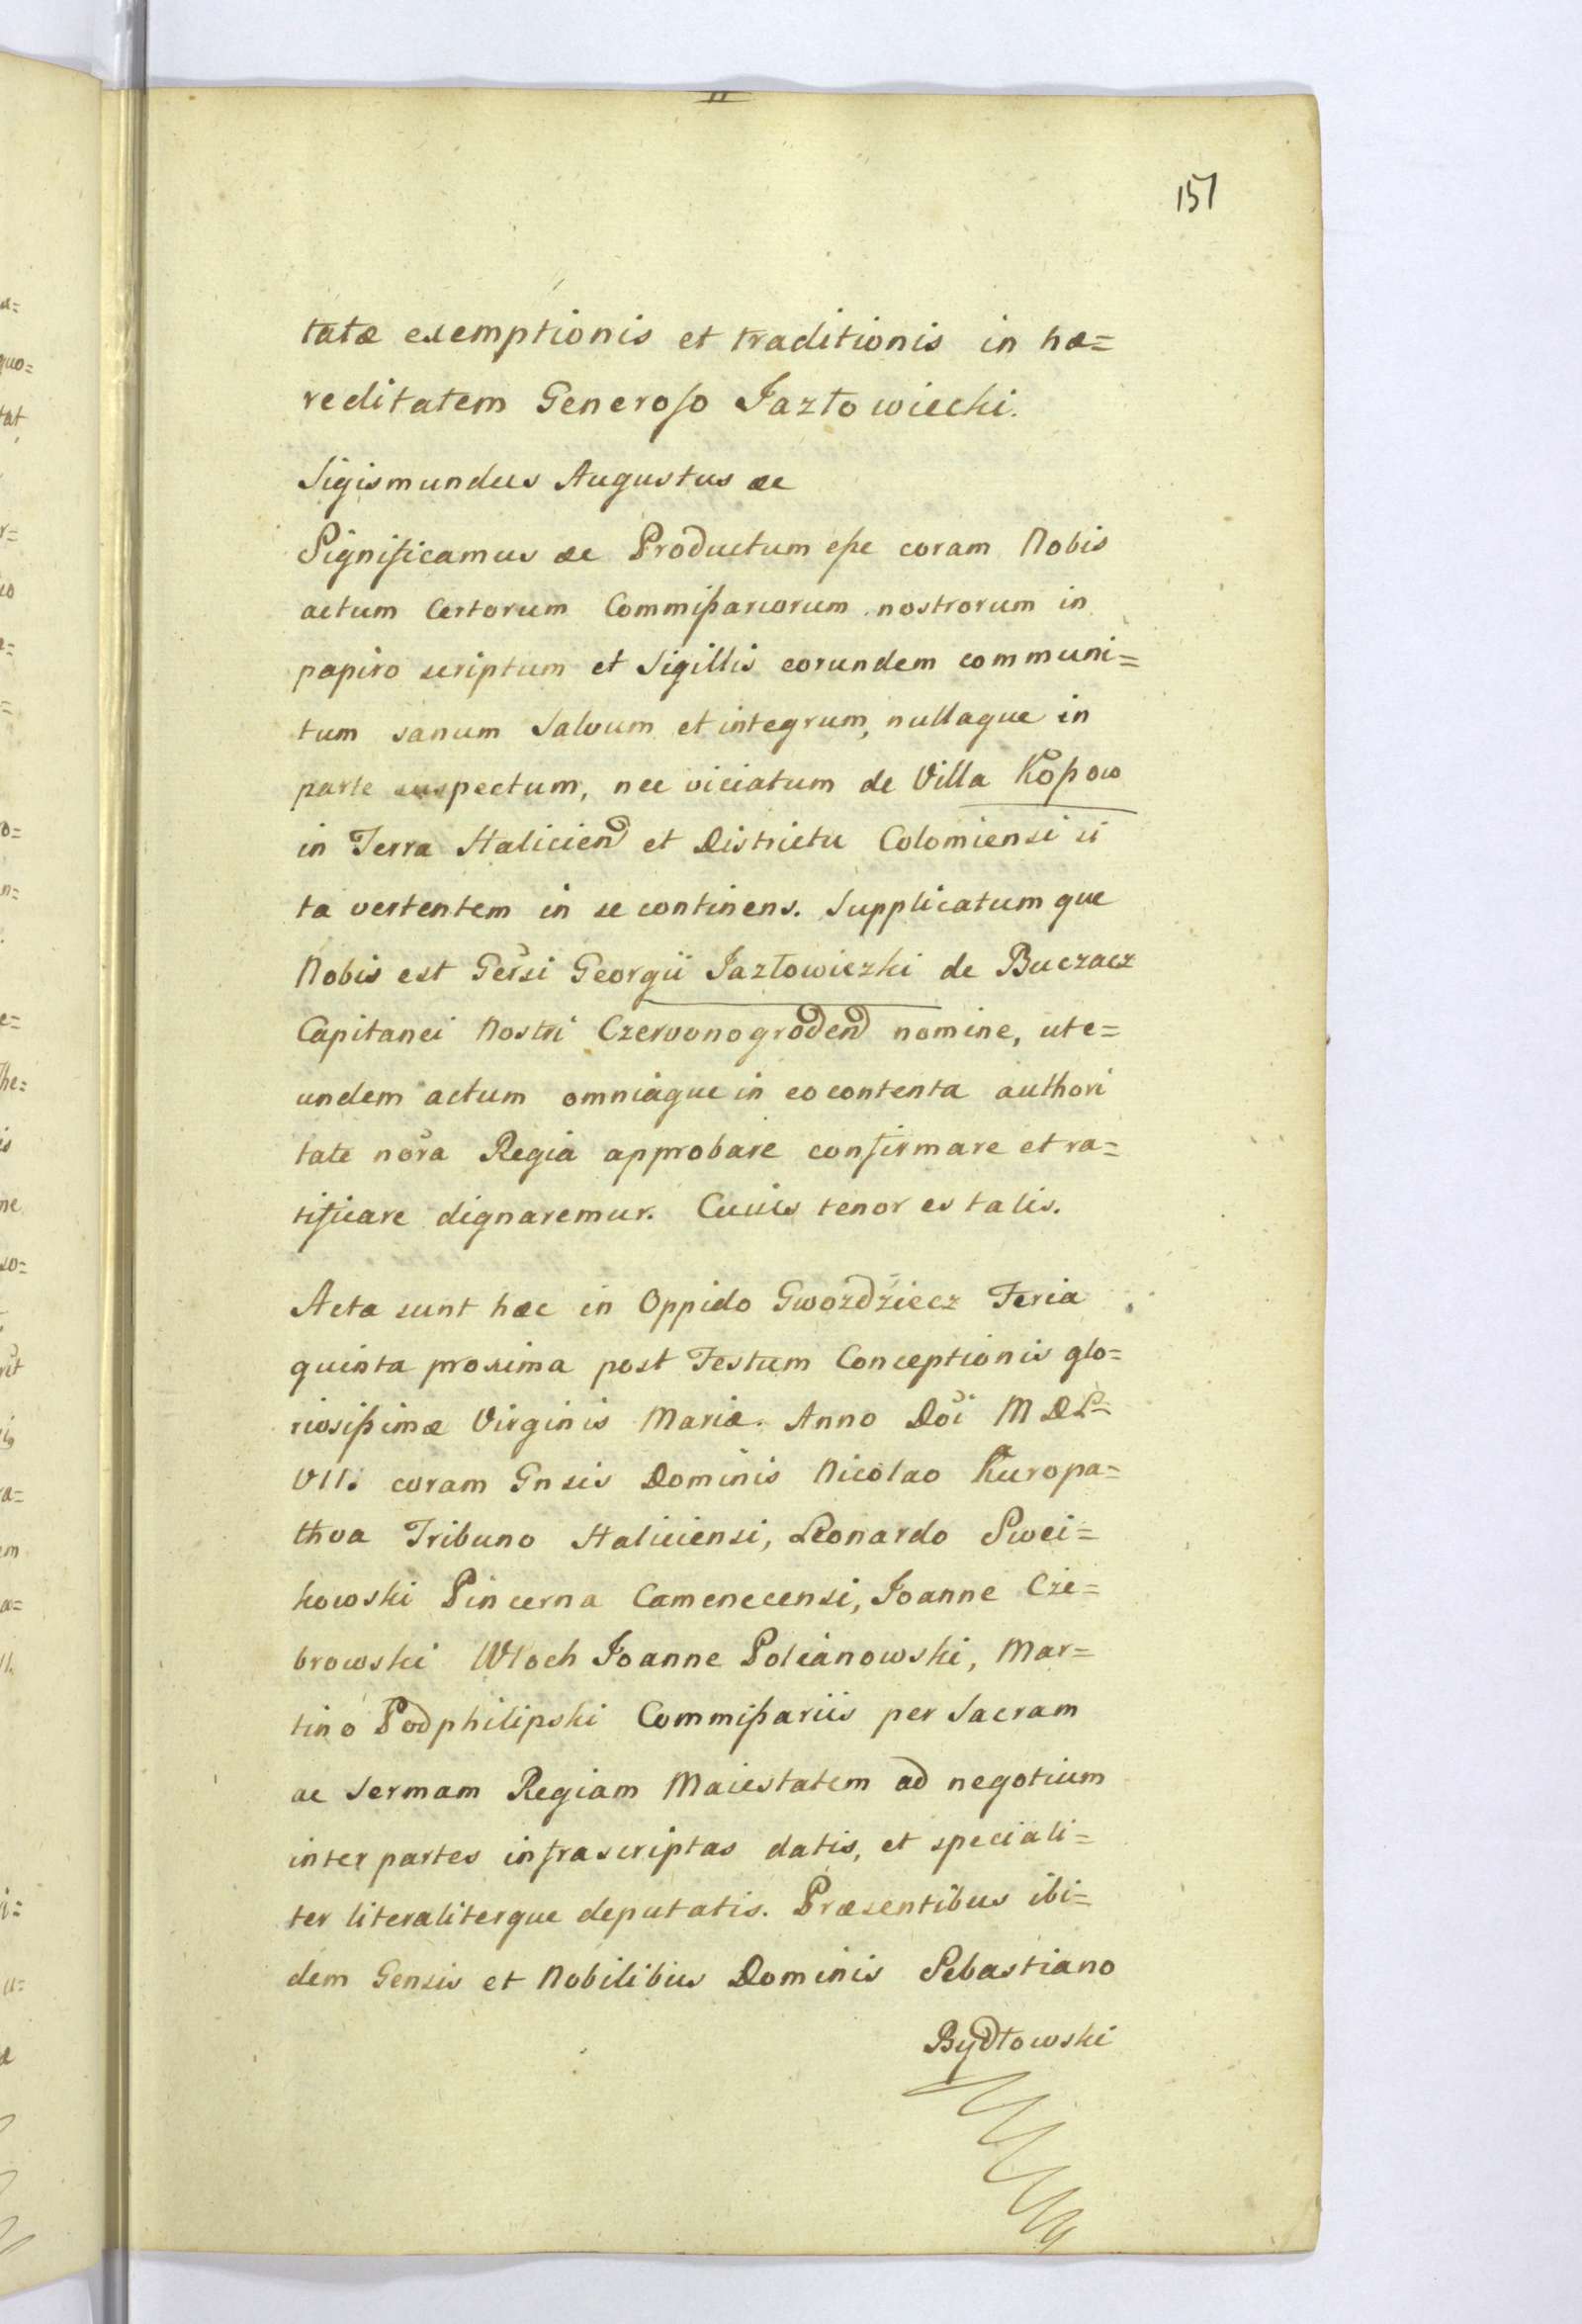 151
tatæ exemptionis et traditionis in hæ=
reditatem Generoso Jazłowiecki.
Sigismundus Augustus &c
Significamus &c Productum esse coram Nobis
actum Certorum Commissariorum nostrorum in
papiro scriptum et Sigillis eorundem communi=
tum sanum Salvum et integrum, nullaque in
parte suspectum, nec viciatum de Villa Kossow
in Terra Halicien et Districtu Colomiensi si
ta vertentem in se continens. Supplicatumque
Nobis est Gersi Georgii Jazłowiczki de Buczacz
Capitanei Nostri Czervonogroden nomine, ut e=
undem actum omniaque in eo contenta authori
tate nora Regia approbare confirmare et ra=
tificare dignaremur. Cuius tenor es talis.
Acta sunt hæc in Oppido Gwozdziecz Feria
quinta proxima post Festum Conceptionis glo=
riosissimæ Virginis Mariæ. Anno Doi MDL=
VII. coram Gnsis Dominis Nicolao Kuropa=
thva Tribuno Haliciensi, Leonardo Swei=
kowski Pincerna Camenecensi, Joanne Cze=
browski Włoch Joanne Polianowski, Mar=
tino Podphilipski Commissariis per Sacram
ac Sermam Regiam Maiestatem ad negotium
inter partes infrascriptas datis, et speciali=
ter literaliterque deputatis. Præsentibus ibi=
dem Gensis et Nobilibus Dominis Sebastiano
Bydłowski